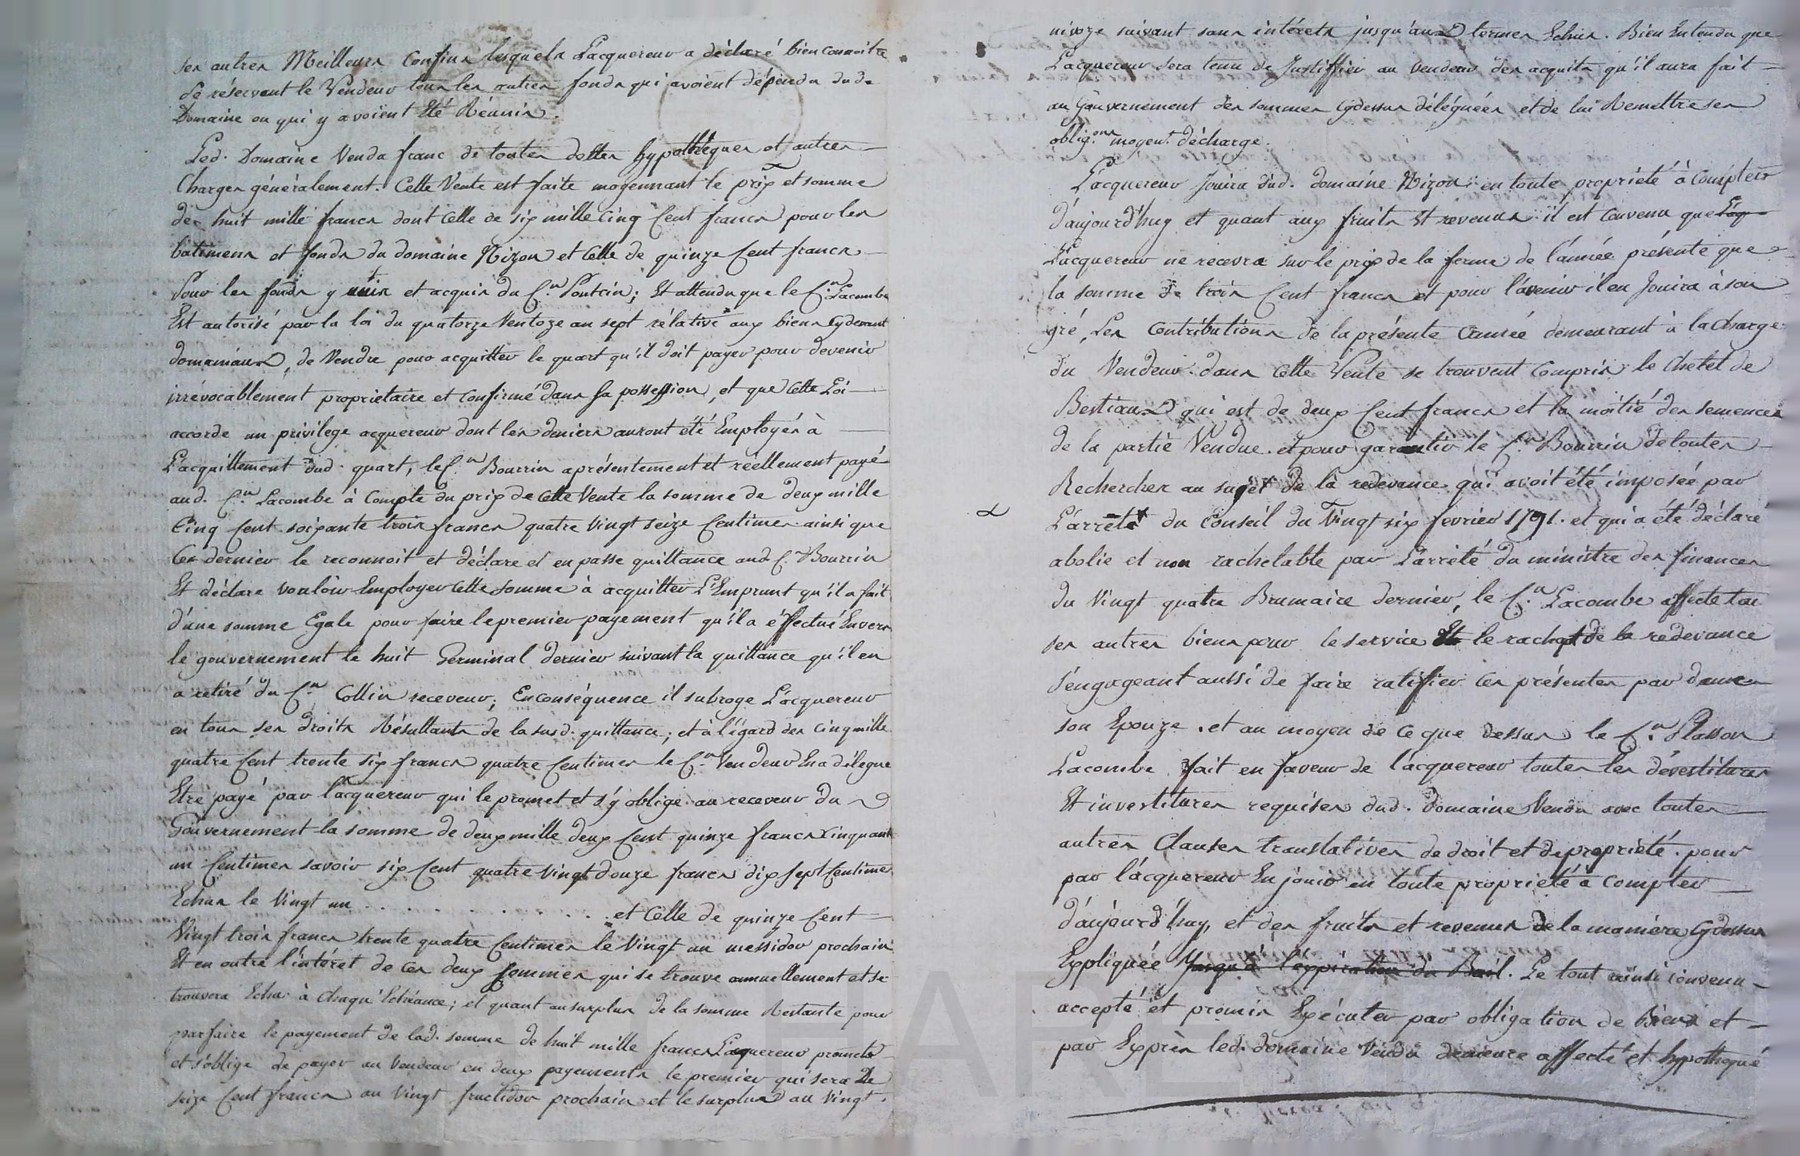 ses autres Meilleurs Confins lesquels L'acquereur a déclaré bien connoitre
se réservant le Vendeur tous les autres fonds qui avoient dépendu dud.
Domaine ou qui y avoient Eté Réunis.
Led. Domaine Vendu franc de toutes dettes hypothèques et autres
Charges généralement. Cette Vente est faite moyennant le prix et somme
de huit mille francs dont Celle de six mille Cinq Cent francs pour les
batimens et fonds du domaine Nizon et Celle de quinze Cent francs
Pour les fonds y unis et acquis du C.en Pontcin; Et attendu que le C.en Lacombe
Est autorisé par la loi du quatorze Ventoze an sept rélative aux biens Cydevant
domaniaux, de Vendre pour acquitter le quart qu'il doit payer pour devenir
irrévocablement propriétaire et Confirmé dans sa possession, et que Cette Loi
accorde un privilege acquereur dont les deniers auront été Employés à
L'acquittement dud. quart, le C.en Bourrin a présentement et réellement payé
aud. C.en Lacombe à Compte du prix de Cette Vente la somme de deux mille
Cinq Cent soixante trois francs quatre Vingt seize Centimes ainsi que
Ce dernier le reconnoit et déclare et en passe quittance aud. C. Bourrin
Et déclare vouloir Employer Cette somme à acquitter L'Emprunt qu'il a fait
d'une somme Egale pour faire le premier payement qu'il a éffectué Envers
le gouvernement le huit Germinal dernier suivant la quittance qu'il en
a retiré du C.en Collin receveur; En conséquence il subroge L'acquereur
en tous ses droits Résultants de la susd. quittance; et à l'égard des Cinq mille
quatre Cent trente six francs quatre Centimes le C.en Vendeur En a délégué
Etre payé par l'acquereur qui le promet et s'y oblige au receveur du
Gouvernement la somme de deux mille deux Cent quinze francs Cinquante
un Centimes savoir six Cent quatre vingt douze francs dix sept Centimes
Echus le Vingt un . . . . . . . . . . et Celle de quinze Cent
Vingt trois francs trente quatre Centimes le Vingt un messidor prochain
Et en outre l'interet de Ces deux sommes qui se trouve annuellement et se
trouvera Echu à Chaqu' Echéance; et quant au surplus de la somme Restante pour
parfaire le payement de lad. somme de huit mille francs L'acquereur promet
et s'oblige de payer au Vendeur en deux payements le premier qui sera De
seize Cent francs au Vingt fructidor prochain et le surplus au Vingt
nivoze suivant sans intérêts jusqu'aux termes Echus. Bien Entendu que
L'acquereur sera tenu de Justiffier au vendeur des acquits qu'il aura fait
au gouvernement des sommes Cydessus déléguées et de lui Remettre ses
oblig.ons moyen.t décharge.
L'acquereur Jouira dud. domaine Nizon en toute propriété à Compter
d'aujourd'huy et quant aux fruits Et revenus il est Convenu que
L'acquereur ne recevra sur le prix de la ferme de l'année présente que
la somme de trois Cent francs et pour l'avenir il en Jouira à son
gré, Les Contributions de la présente Année demeurant à la Charge
du Vendeur. dans Cette Vente se trouvent Compris le Chetel de
Bestiaux qui est de deux Cent francs et la moitié des semences
de la partie Vendue. et pour garantir le C.en Bourrin de toutes
Recherches au sujet de la redevance qui avoit été imposée par
L'arrêté du Conseil du Vingt six fevrier 1791. et qui a été déclaré
abolie et non rachetable par L'arrêté du ministre des finances
du Vingt quatre Brumaire dernier, le C.en Lacombe affecte tous
ses autres biens pour le service Et le rachapt de la redevance
s'engageant aussi de faire ratiffier Ces présentes par dame
son Epouze. et au moyen de Ce que dessus le C.en Plasson
Lacombe fait en faveur de l'acquereur toutes les dévestitures
Et investitures requises dud. domaine Vendu avec toutes
autres Clauses translatives de droit et de propriété. pour
par l'acquereur En jouir en toute propriété à Compter
d'aujourd'huy, et des fruits et revenus de la maniere Cydessus
Expliquée Jusqu'à l'expiration du Bail. Le tout ainsi Convenu
accepté et promis Exécuter par obligation de Biens et
par Exprès led. domaine Vendu demeure affecté et hypothequé